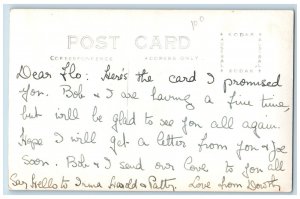 10.0
POST CARD
CORRESPONDENCE ADDRESS ONLY
KODAK
KODAK
Dear Flo: Here's the card I promised
you. Bob & I are having a fine time,
but will be glad to see you all again.
Hope I will get a letter from you & Joe
soon. Bob & I send our love to you all
Say Hello to Irma Harold & Patty. Love from Dorothy